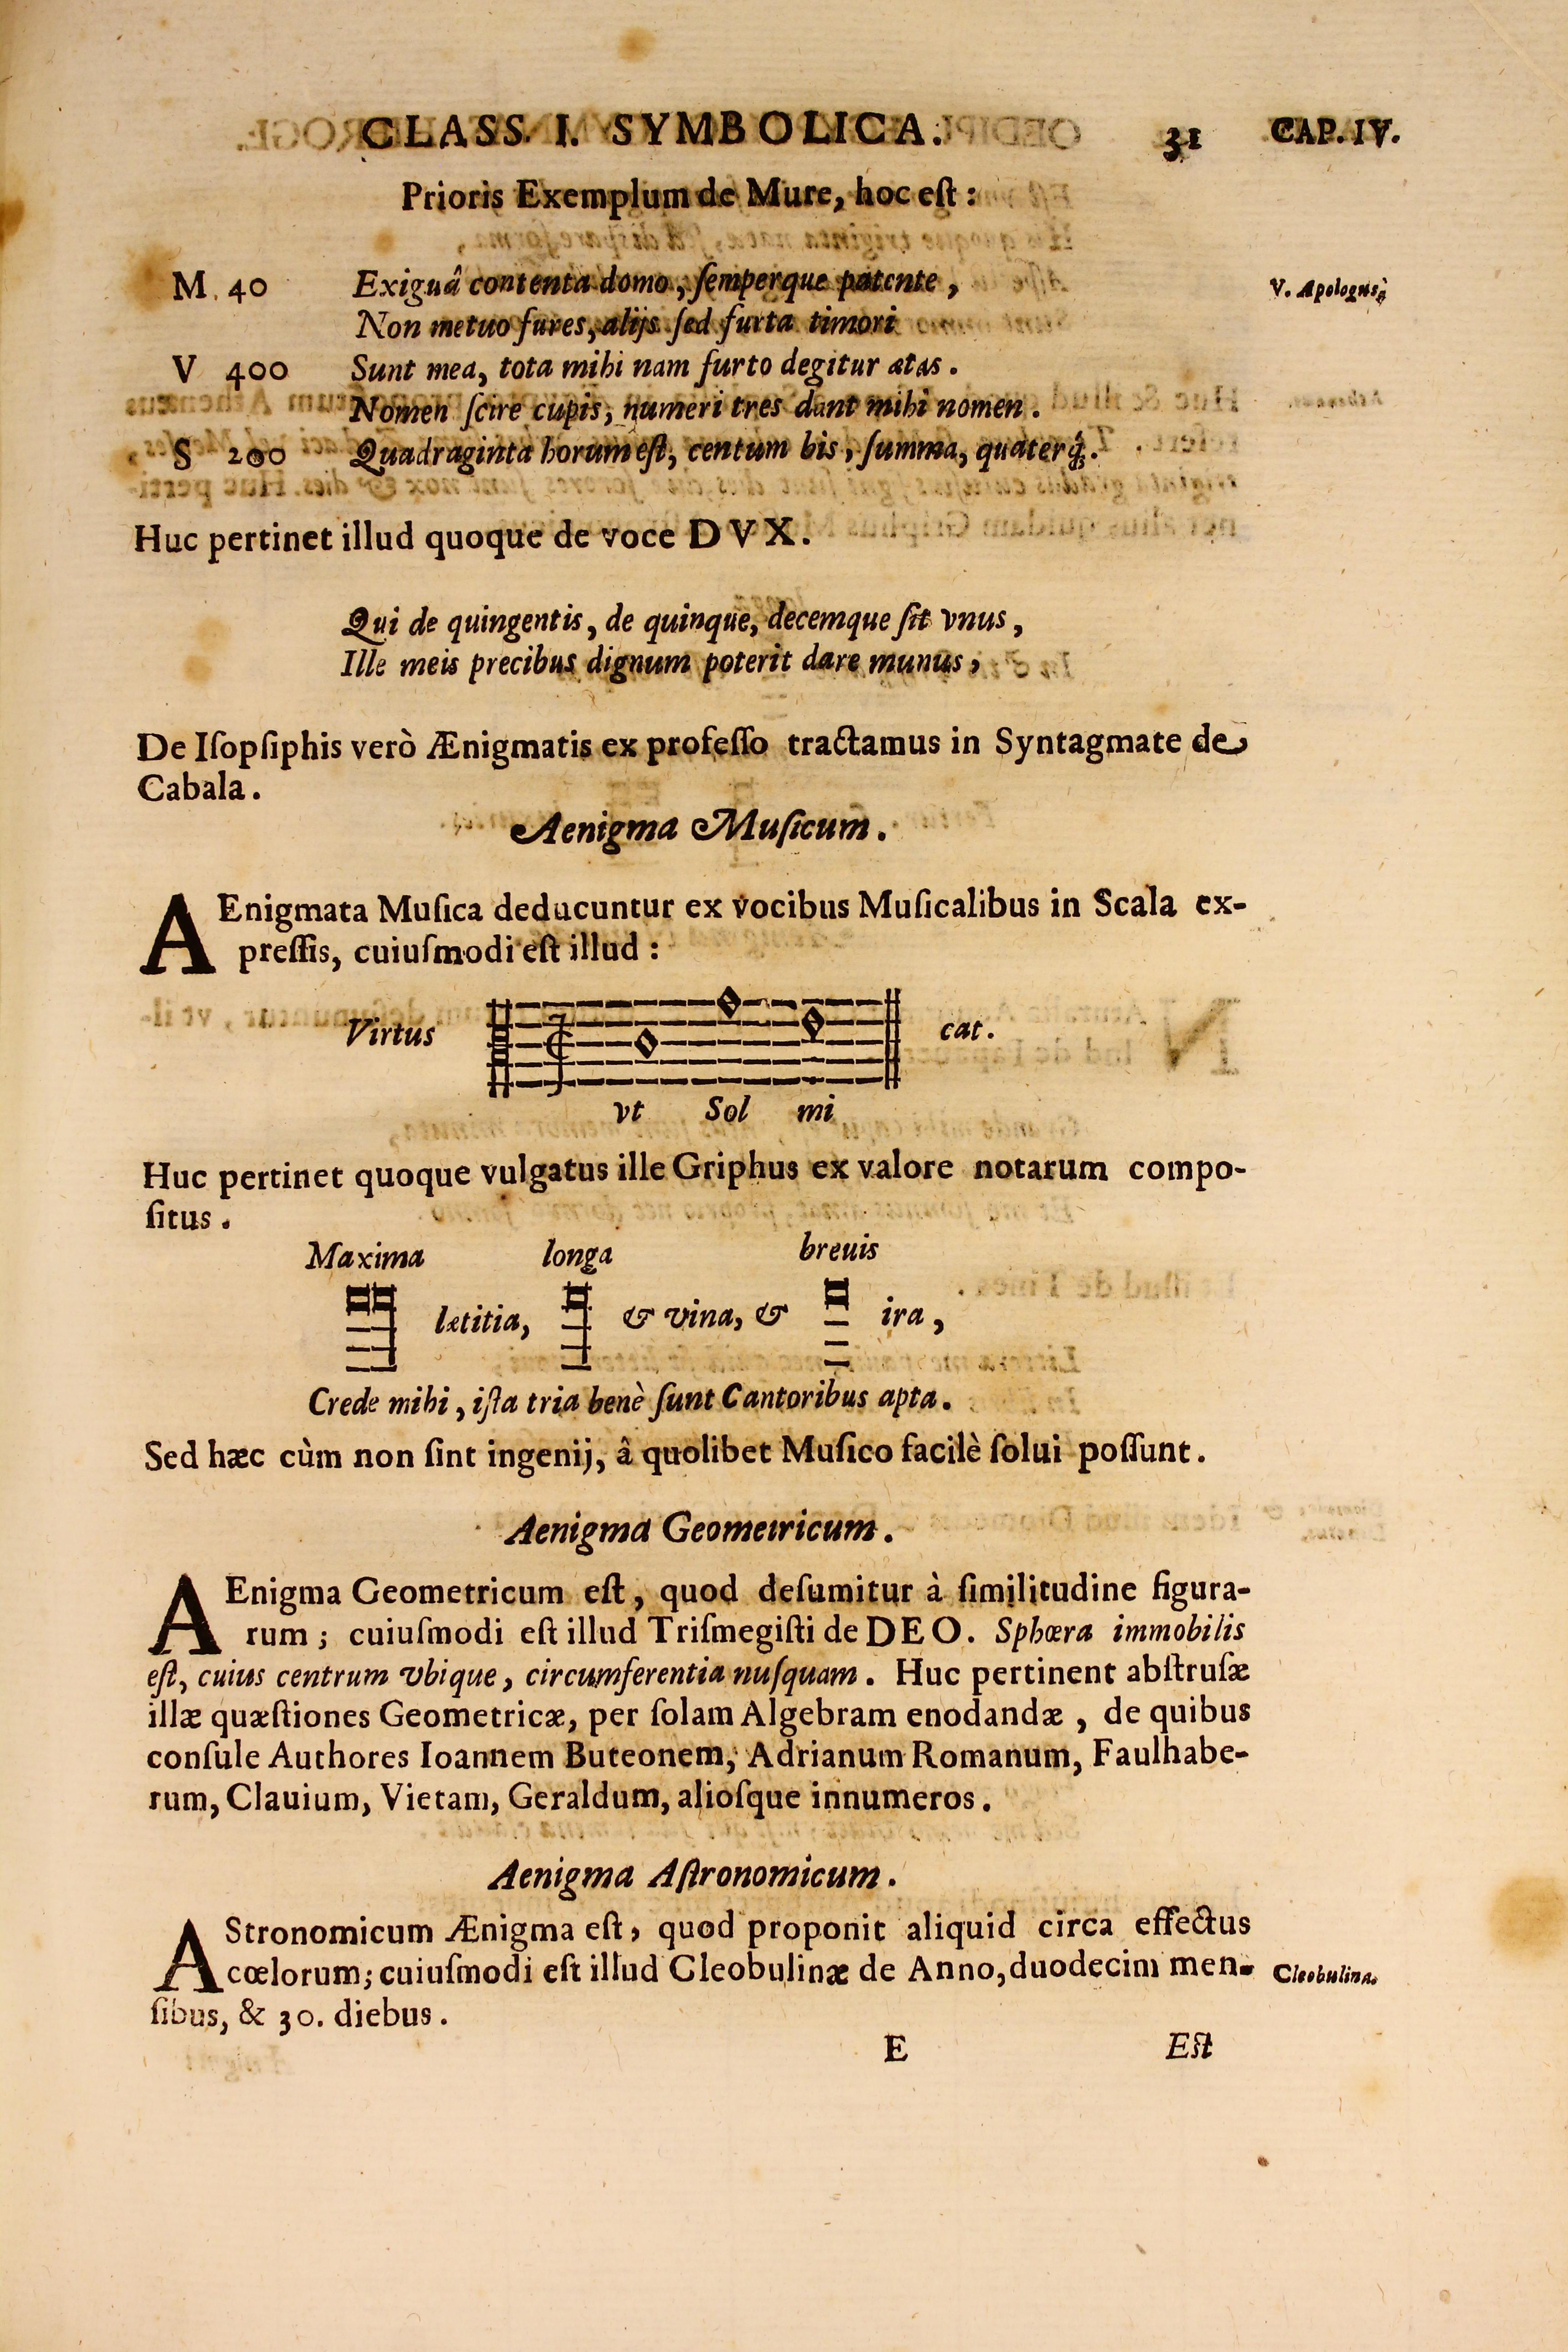 CLASS I. SYMBOLICA. 31 CAP. IV.
Prioris Exemplum de Mure, hoc eſt:
M. 40 Exiguâ contenta domo, ſemperque patente, V. Apologus
Non metuo fures, alijs ſed furta timori
V 400 Sunt mea, tota mihi nam furto degitur ætas.
Nomen ſcire cupis, numeri tres dant mihi nomen.
S 200 Quadraginta horum eſt, centum bis, ſumma, quaterq́.
Huc pertinet illud quoque de voce DVX.
Qui de quingentis, de quinque, decemque ſit vnus,
Ille meis precibus dignum poterit dare munus,
De Iſopſiphis verò Ænigmatis ex profeſſo tractamus in Syntagmate de
Cabala.
Aenigma Muſicum.
AEnigmata Muſica deducuntur ex vocibus Muſicalibus in Scala ex-
preſſis, cuiuſmodi eſt illud:
Virtus cat.
vt Sol mi
Huc pertinet quoque vulgatus ille Griphus ex valore notarum compo-
ſitus.
Maxima longa breuis
lætitia, & vina, & ira,
Crede mihi, iſta tria benè ſunt Cantoribus apta.
Sed hæc cùm non ſint ingenij, â quolibet Muſico facilè ſolui poſſunt.
Aenigma Geometricum.
AEnigma Geometricum eſt, quod deſumitur à ſimilitudine figura-
rum; cuiuſmodi eſt illud Triſmegiſti de DEO. Sphœra immobilis
eſt, cuius centrum vbique, circumferentia nuſquam. Huc pertinent abſtruſæ
illæ quæſtiones Geometricæ, per ſolam Algebram enodandæ, de quibus
conſule Authores Ioannem Buteonem, Adrianum Romanum, Faulhabe-
rum, Clauium, Vietam, Geraldum, alioſque innumeros.
Aenigma Aſtronomicum.
AStronomicum Ænigma eſt, quod proponit aliquid circa effectus
cœlorum; cuiuſmodi eſt illud Cleobulinæ de Anno, duodecim men- Cleobulina.
ſibus, & 30. diebus.
E Eſt